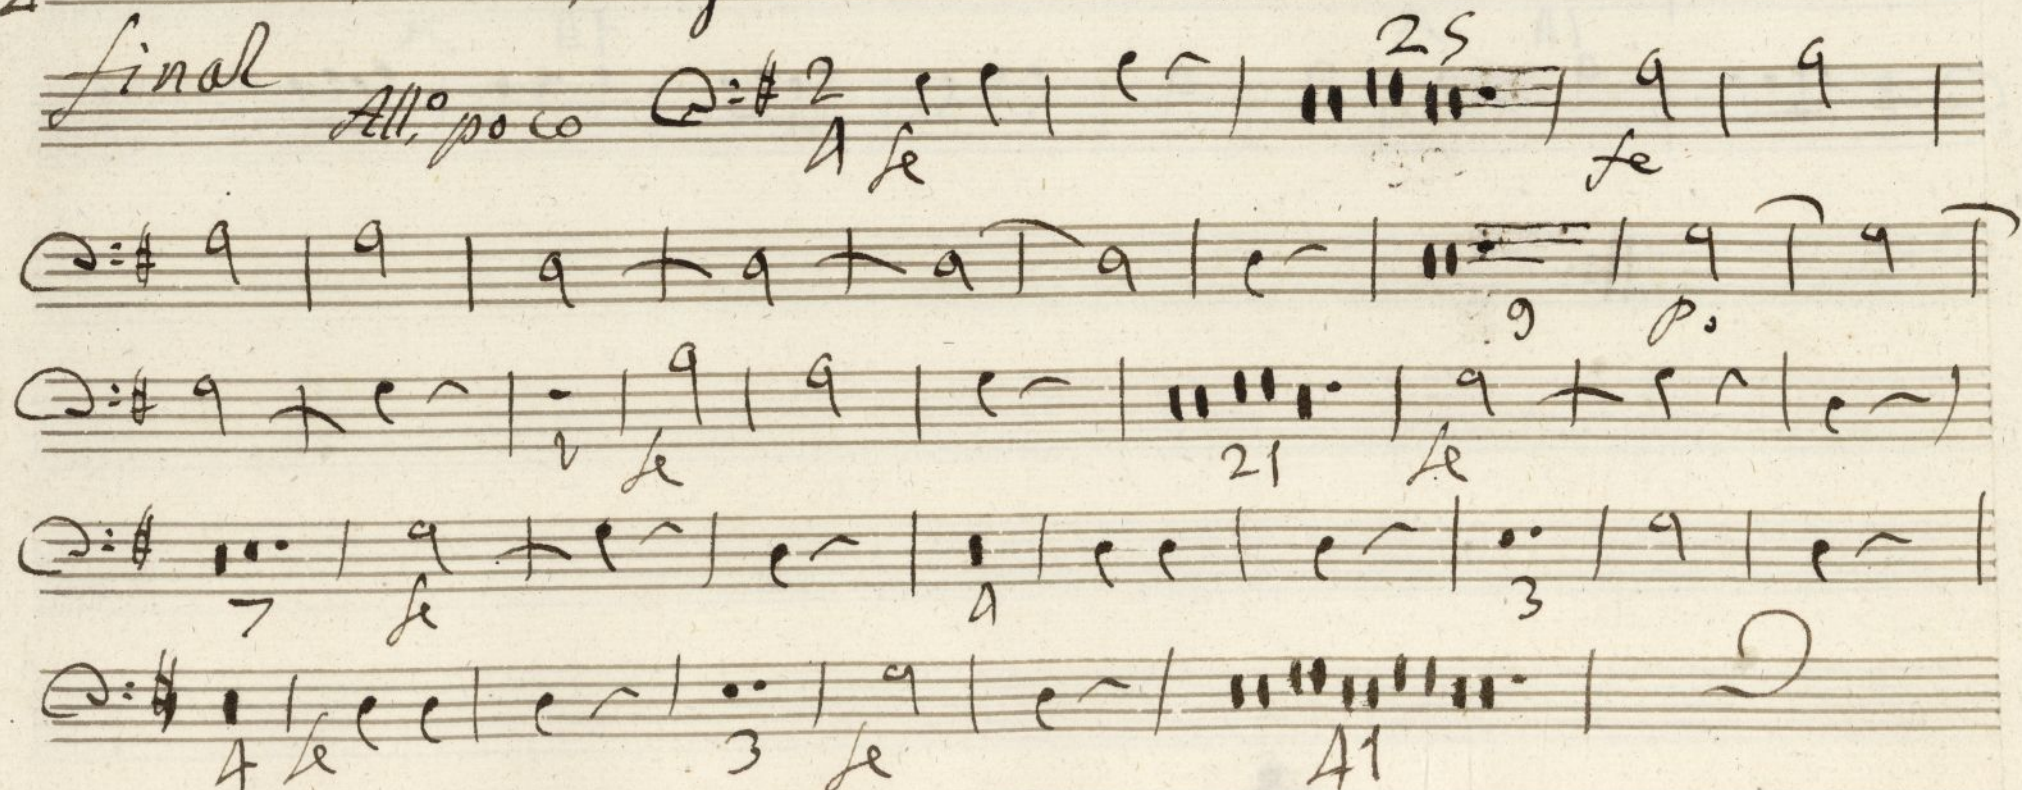 25
final All.o poco 2 4 fe fe
9 p.
2 fe 21 fe
7 fe 4 3
4 fe 3 fe 41